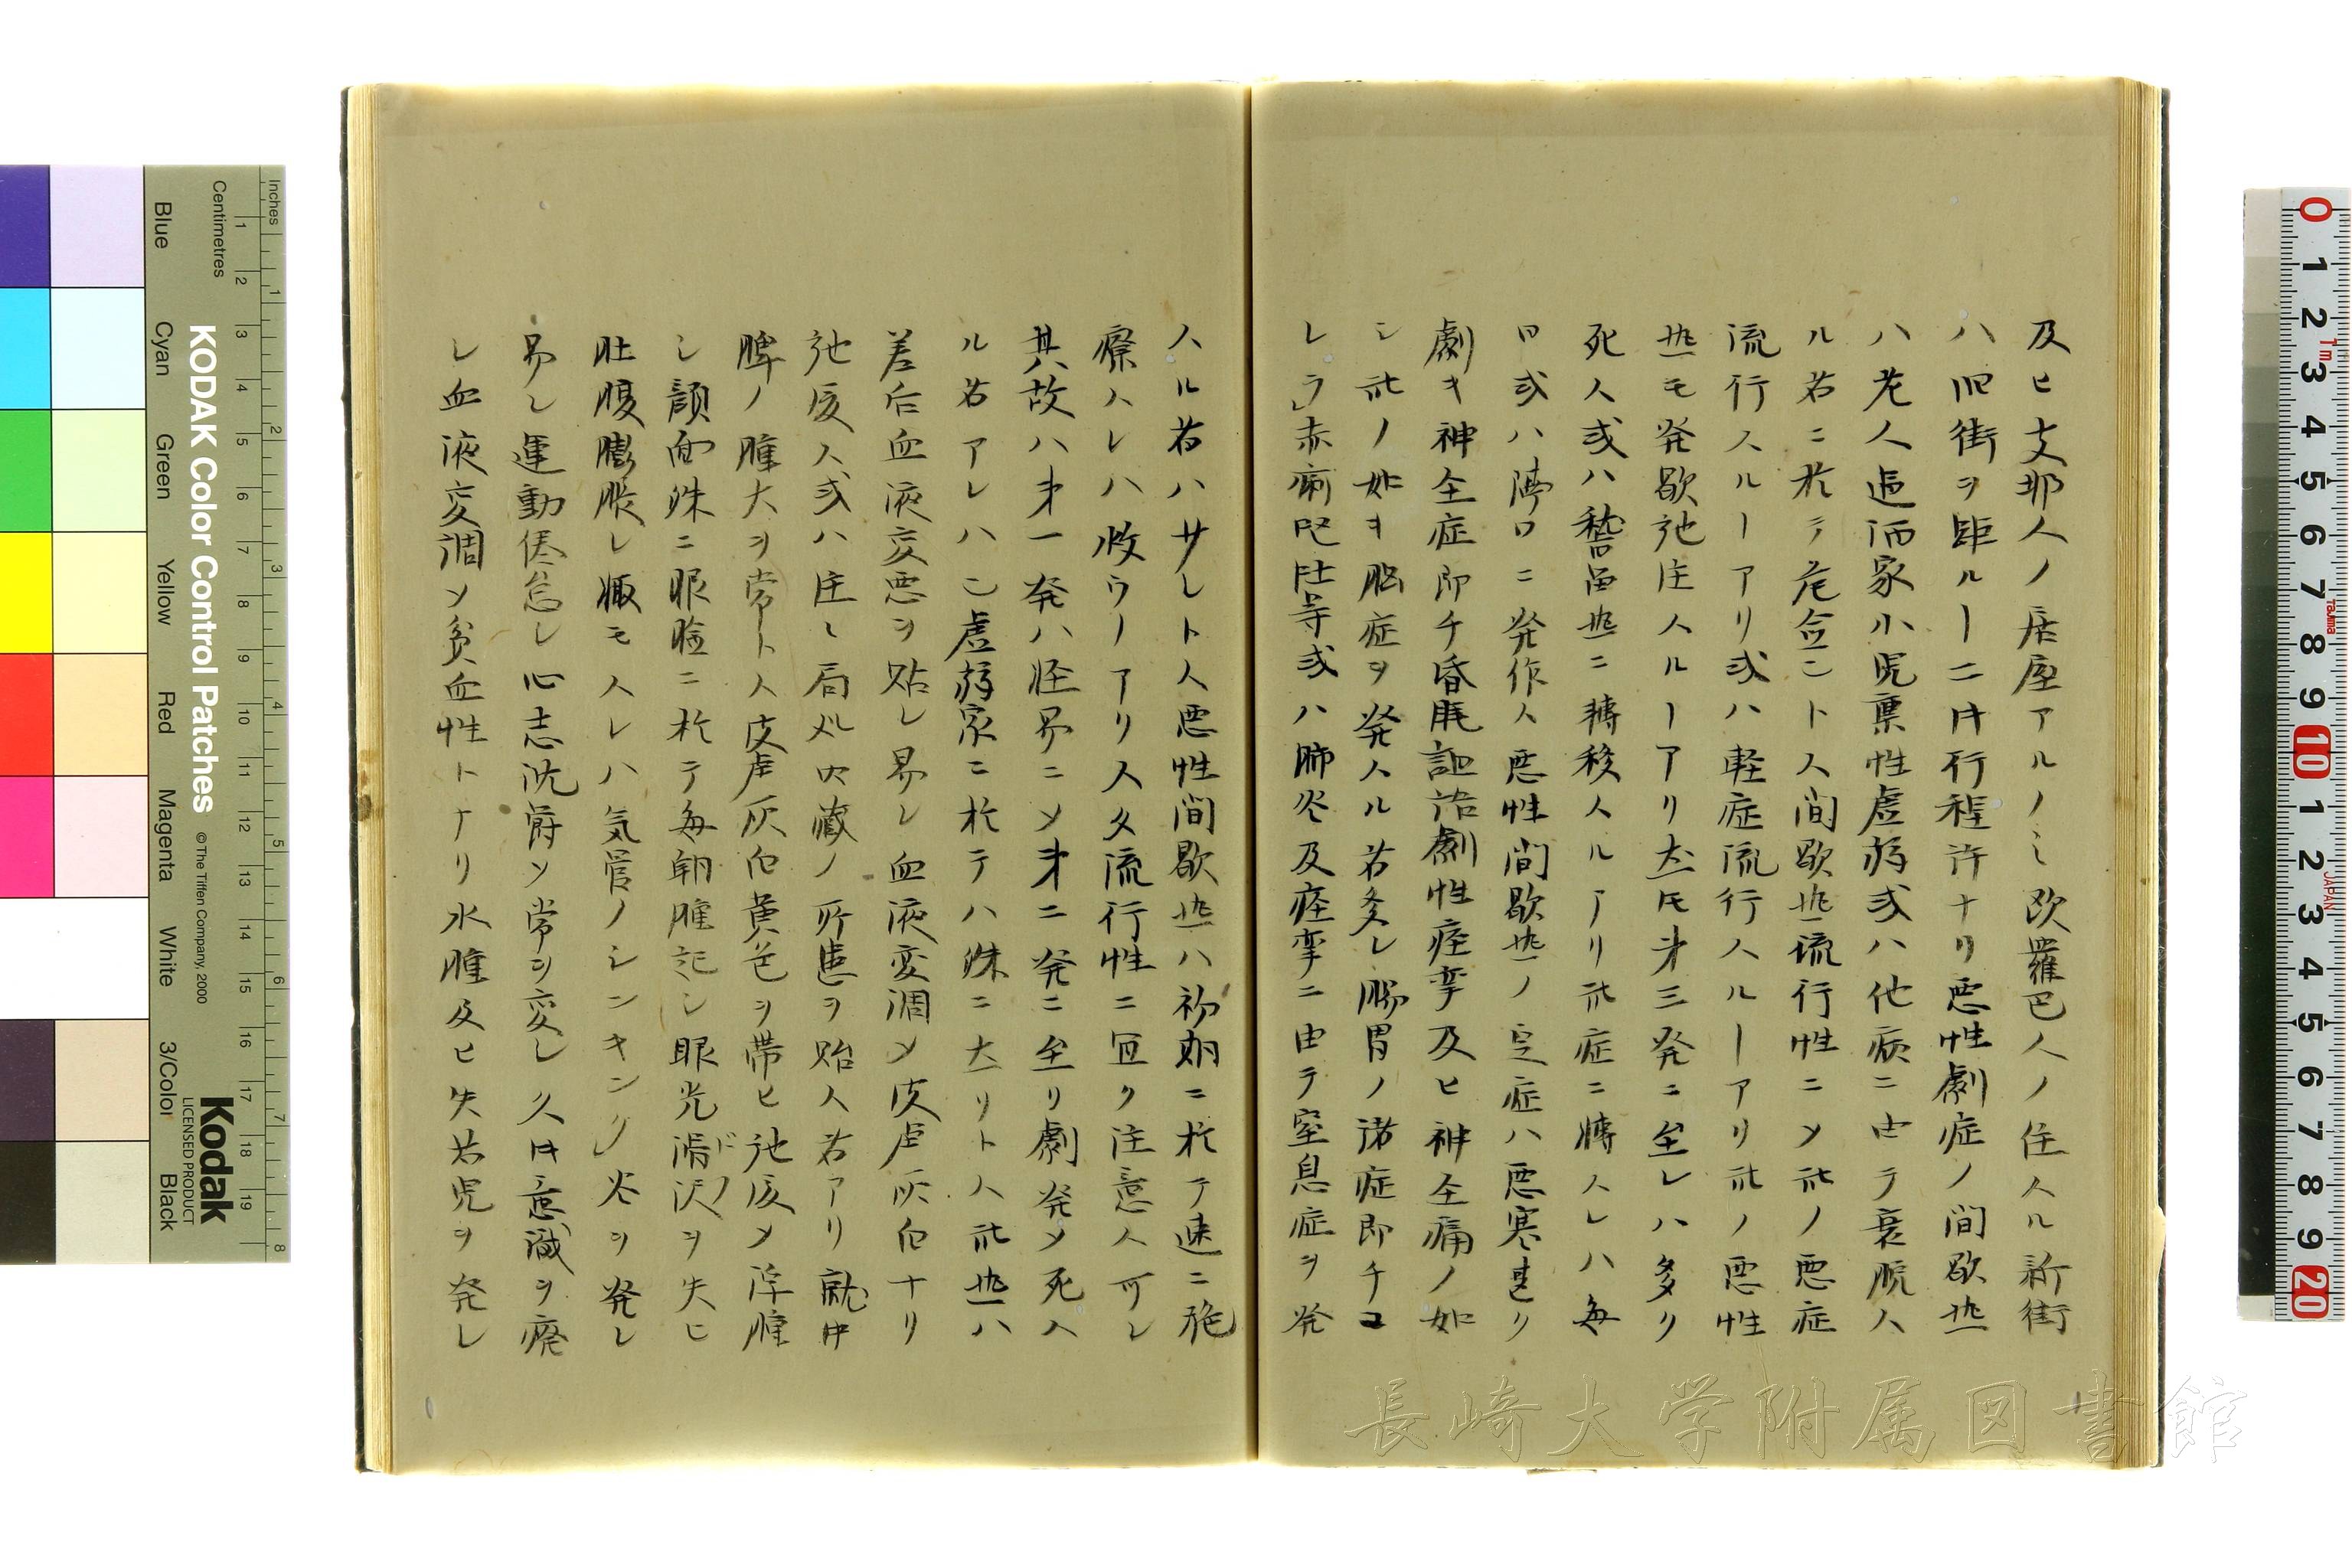 及ヒ支那人ノ居屋アルノミ欧羅巴人ノ住スル新街
ハ旧街ヲ距ルー二时行程許ナリ悪性劇症ノ間歇热
ハ老人過酒家小児稟性虚弱或ハ他病ニ由テ衰脱ス
ル者ニ於テ危金ニトス間歇热流行性ニメ此ノ悪症
流行スルーアリ或ハ軽症流行スルーアリ此ノ悪性
热モ発歇弛注スルーアリ圥氏才三発ニ至レハ多クリ
死ス或ハ稽留热ニ轉移スルアリ此症ニ轉スレハ毎
日或ハ隔日ニ発作ス悪性間歇热ノ主症ハ悪寒速リ
劇キ神全症即チ昏眊譫語劇性痙挛及ヒ神全痛ノ如
シ此ノ如キ脳症ヲ発スル者多シ腸胃ノ諸症即チコ
レラ」赤痢嘔吐等或ハ肺炎及痙挛ニ由テ窒息症ヲ発
スル者ハサレト人悪性間歇热ハ初期ニ於テ速ニ施
療スレハ收ウーアリスタ流行性ニ宜ク注意ス可シ
其故ハ才一発ハ怪易ニメ才二発ニ至リ劇発メ死ス
ル者アレハ也虚弱家ニ於テハ殊ニ大リトス此热ハ
差后血液変悪ヲ貽シ易シ血液変調メ皮膚灰白ナリ
弛废ス或ハ住々局処内臓ノ所患ヲ貽ス者アリ就中
脾ノ腫大ヲ常トス皮膚灰白黄色ヲ帯ヒ弛废メ浮腫
シ顔面殊ニ眼瞼ニ於テ毎朝腫起シ眼光滑沢ヲ失ヒ
肚腹膨脹シ輒モスレハ気管ノシンキング」炎ヲ発シ
易シ運動倦怠シ心志沈欝メ常ヲ変シ久时意識ヲ癈
シ血液変調メ貧血性トナリ水腫及ヒ失苟児ヲ発シ
KODAK Color Control Patches
© The Tiffen Company, 2000
Kodak
LICENSED PRODUCT
Inches
Centimetres
Blue
Cyan
Green
Yellow
Red
Magenta
White
3/Color
Black
長崎大学附属図書館